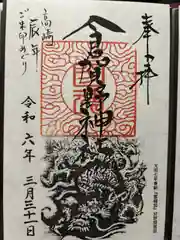 奉拝
倉賀野神社
高崎
辰年
ご朱印めぐり
令和六年
三月三十一日